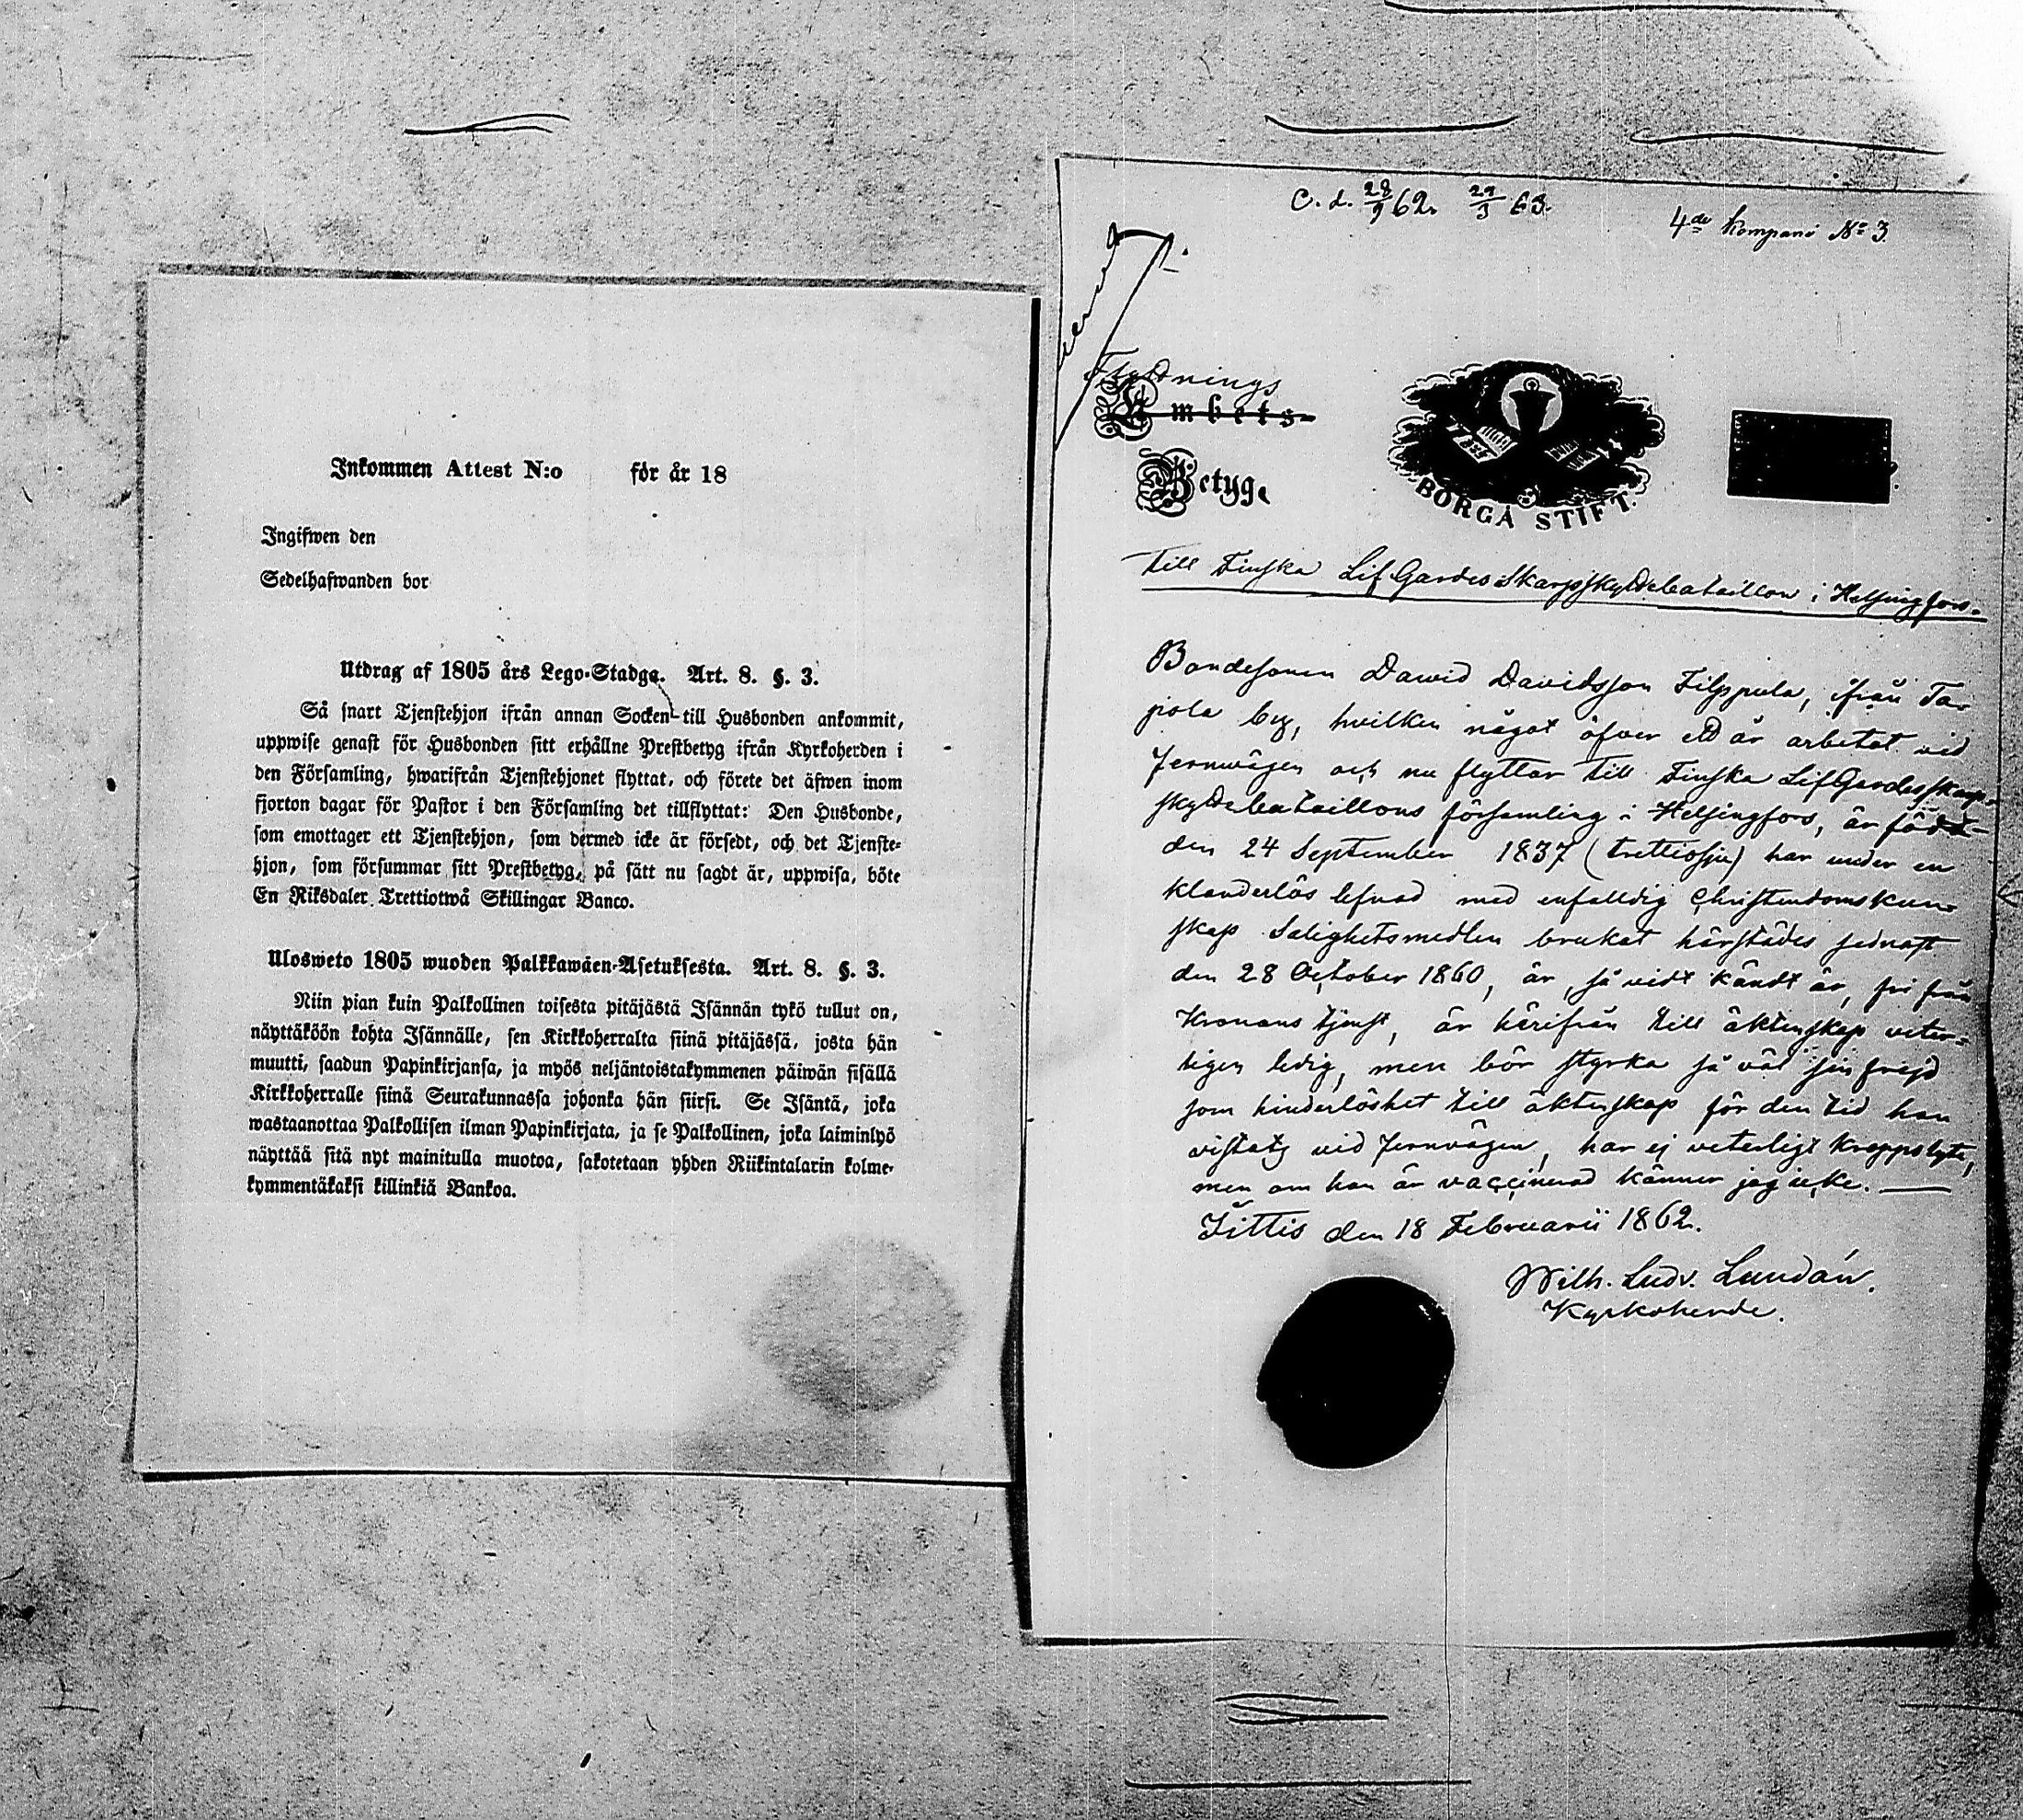 Inkommen Attest N:o för år 18
Ingifwen den
Sedelhafwanden bor
Utdrag af 1805 års Lego-Stadga. Art. 8. §. 3.
Så snart Tjenstehjon ifrån annan Socken till Husbonden ankommit,
uppwise genast för Husbonden sitt erhållne Prestbetyg ifrån Kyrkoherden i
den Församling, hwarifrån Tjenstehjonet flyttat, och förete det äfwen inom
fjorton dagar för Pastor i den Församling det tillflyttat: Den Husbonde,
som emottager ett Tjenstehjon, som dermed icke är försedt, och det Tjenste-
hjon, som försummar sitt Prestbetyg, på sätt nu sagdt är, uppwisa, böte
En Riksdaler Trettiotwå Skillingar Banco.
Ulosweto 1805 wuoden Palkkawäen-Asetuksesta. Art. 8. §. 3.
Niin pian kuin Palkollinen toisesta pitäjästä Isännän tykö tullut on,
näyttäköön kohta Isännälle, sen Kirkkoherralta siinä pitäjässä, josta hän
muutti, saadun Papinkirjansa, ja myös neljäntoistakymmenen päiwän sisällä
Kirkkoherralle siinä Seurakunnassa johonka hän siirsi. Se Isäntä, joka
wastaanottaa Palkollisen ilman Papinkirjata, ja se Palkollinen, joka laiminlyö
näyttää sitä nyt mainitulla muotoa, sakotetaan yhden Riikintalarin kolme-
kymmentäkaksi killinkiä Bankoa.
C. d. 28/9 62. 29/3 63.
4de Kompani No 3.
Flyttnings
Embets-
Betyg.
BORGÅ STIFT.
Till Finska LifGardes Skarpskyttebataillon i Helsingfors.
Bondesonen Dawid Davidsson Filppula, ifrån Ta-
pola by, hvilken något öfver ett år arbetat vid
Jernvägen och nu flyttar till Finska LifGardesskarp-
skyttebataillons församling i Helsingfors, är född
den 24 September 1837 (trettiosju) har under en
klanderlös lefnad med enfalldig Christendomskun-
skap Salighetsmedlen brukat härstädes sednast
den 28 October 1860, är, så vidt kändt är, fri från
Kronans tjenst, är härifrån till äktenskap veter-
ligen ledig, men bör styrka så väl sin frejd
som hinderlöshet till äktenskap för den tid han
vistats vid Jernvägen, har ej veterligt kroppslyte,
men om han är vaccinerad känner jag icke.
Iittis den 18 Februarii 1862.
Wilh. Ludv. Lundán.
Kyrkoherde.